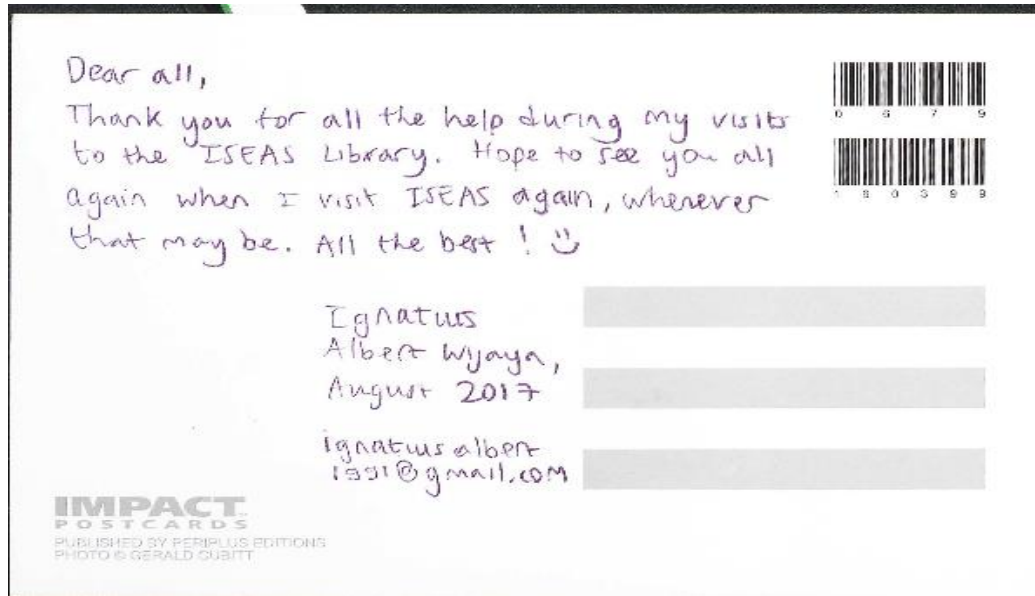 Dear all,
Thank you for all the help during my visits
to the ISEAS Library. Hope to see you all
again when I visit ISEAS again, whenever
that may be. All the best ! :)
0 6 7 9
1 8 0 3 9 9
Ignatius
Albert Wijaya,
August 2017
ignatius albert
1991@gmail.com
IMPACT
POSTCARDS
PUBLISHED BY PERIPLUS EDITIONS
PHOTO © GERALD CUBITT